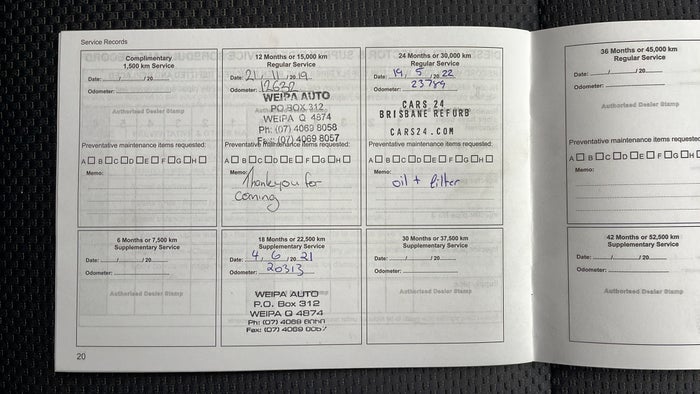 Service Records
Complimentary
1,500 km Service
Date: / / 20
Odometer:
Authorised Dealer Stamp
Preventative maintenance items requested:
A☐ B☐ C☐ D☐ E☐ F☐ G☐ H☐
Memo:
12 Months or 15,000 km
Regular Service
Date: 21 / 11 / 20 19
Odometer: 12622
WEIPA AUTO
PO BOX 312
WEIPA Q 4874
Ph: (07) 4069 8058
Fax: (07) 4069 8057
Preventative maintenance items requested:
A☐ B☐ C☐ D☐ E☐ F☐ G☐ H☐
Memo:
Thankyou for
coming
24 Months or 30,000 km
Regular Service
Date: 19 / 5 / 20 22
Odometer: 23789
CARS 24
BRISBANE REFURB
CARS24.COM
Preventative maintenance items requested:
A☐ B☐ C☐ D☐ E☐ F☐ G☐ H☐
Memo:
oil + filter
6 Months or 7,500 km
Supplementary Service
Date: / / 20
Odometer:
Authorised Dealer Stamp
18 Months or 22,500 km
Supplementary Service
Date: 4 / 6 / 20 21
Odometer: 20313
WEIPA AUTO
P.O. Box 312
WEIPA Q 4874
Ph: (07) 4069
Fax: (07) 4069
30 Months or 37,500 km
Supplementary Service
Date: / / 20
Odometer:
Authorised Dealer Stamp
20
36 Months or 45,000 km
Regular Service
Date: / / 20
Odometer:
Authorised Dealer Stamp
Preventative maintenance items requested
A☐ B☐ C☐ D☐ E☐ F☐ G☐ H
Memo:
42 Months or 52,500 km
Supplementary Service
Date: / / 20
Odometer:
Authorised Dealer Stamp